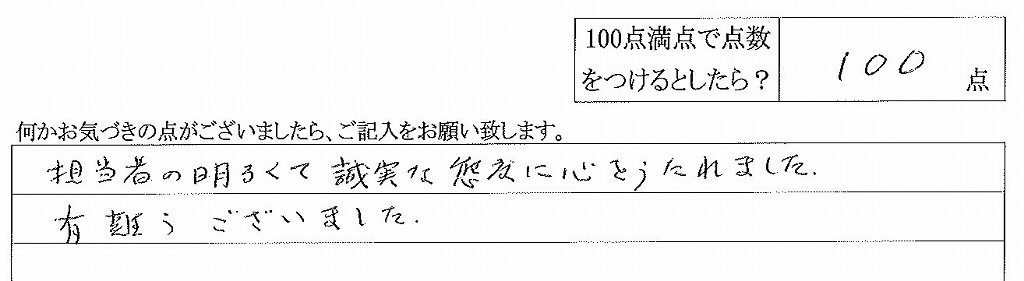 100点満点で点数
をつけるとしたら？
100 点
何かお気づきの点がございましたら、ご記入をお願い致します。
担当者の明るくて誠実な態度に心をうたれました.
有難う ございました.